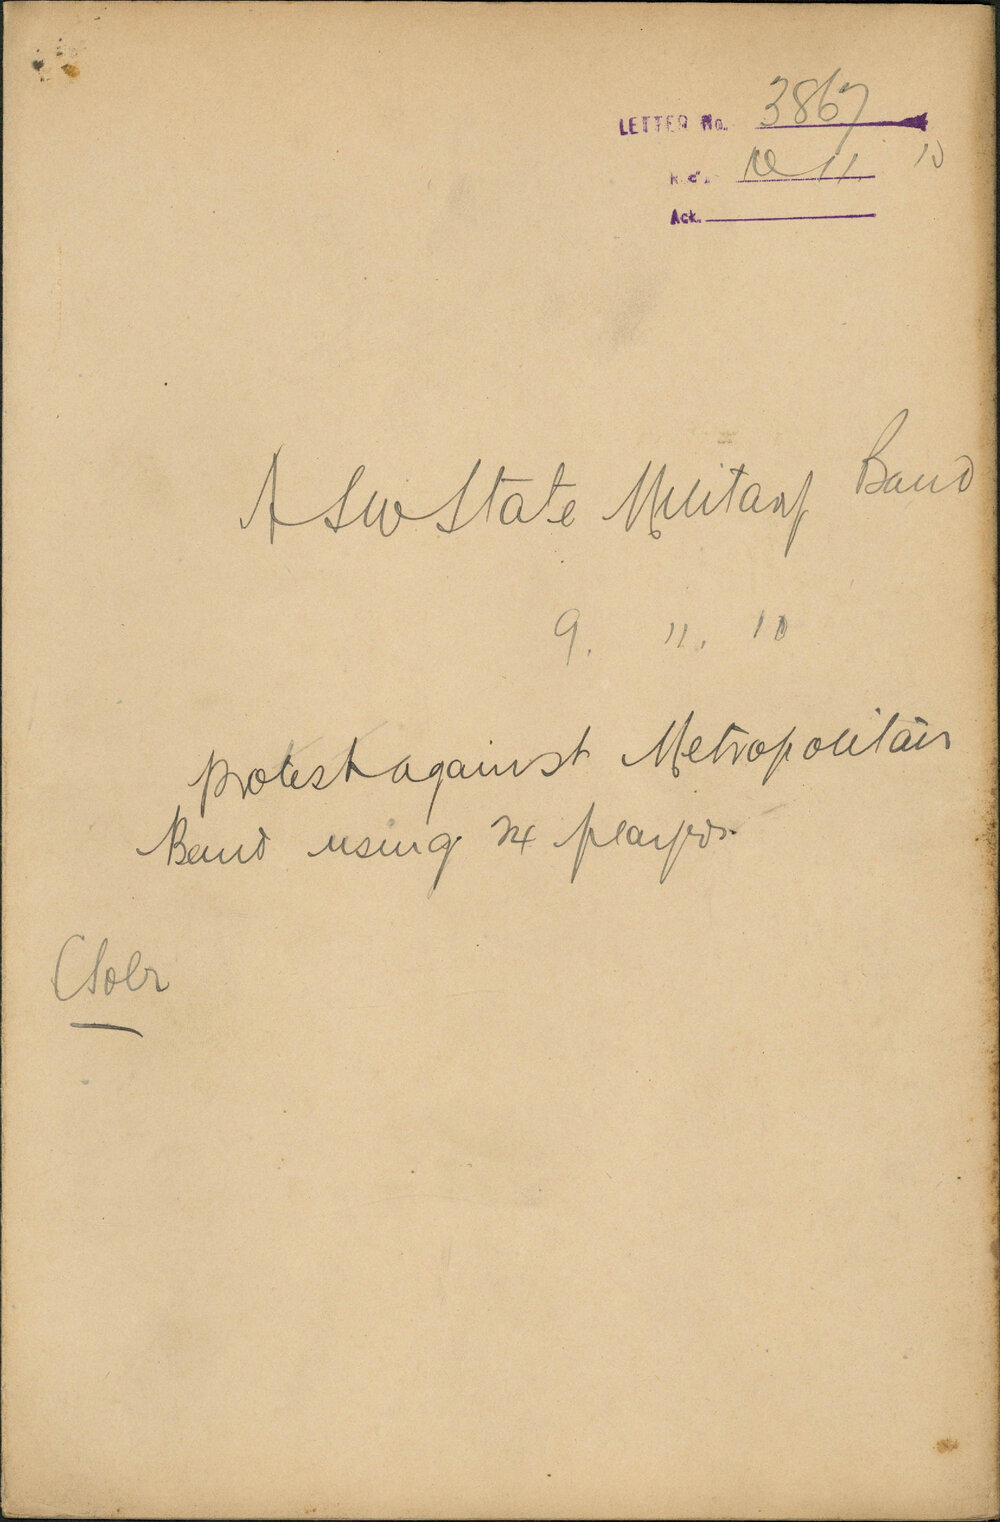 LETTER No. 3867
Rec'd 10 11 10
Ack.
N S W State Military Band
9. 11. 10
Protest against Metropolitan
Band using 24 players